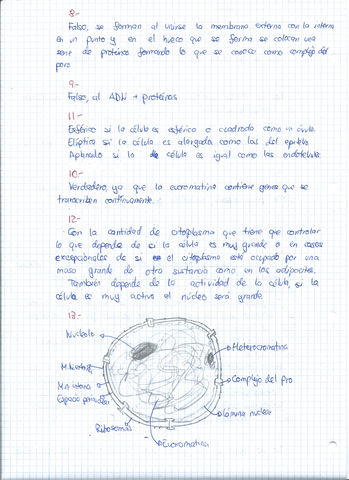 8.-
Falso, se forman al unirse la membrana externa con la interna
en un punto y en el hueco que se forma se colocan una
serie de proteínas formando lo que se conoce como complejo del
poro.
9.-
Falso, al ADN + proteínas
11.-
Esférico si la célula es esférica o cuadrada como un óvulo.
Elíptico si la célula es alargada como las del epitelio
Aplanado si la célula es igual como las endoteliales
10.-
Verdadero, ya que la eucromatina contiene genes que se
transcriben continuamente.
12.-
Con la cantidad de citoplasma que tiene que controlar
lo que depende de si la célula es muy grande o en casos
excepcionales de si el citoplasma está ocupado por una
masa grande de otra sustancia como en los adipocitos.
También depende de la actividad de la célula, si la
célula es muy activa el núcleo será grande.
13.-
Nucleolo
Heterocromatina
M.
M. interna
Complejo del poro
Espacio
Lámina nuclear
Ribosomas
Eucromatina